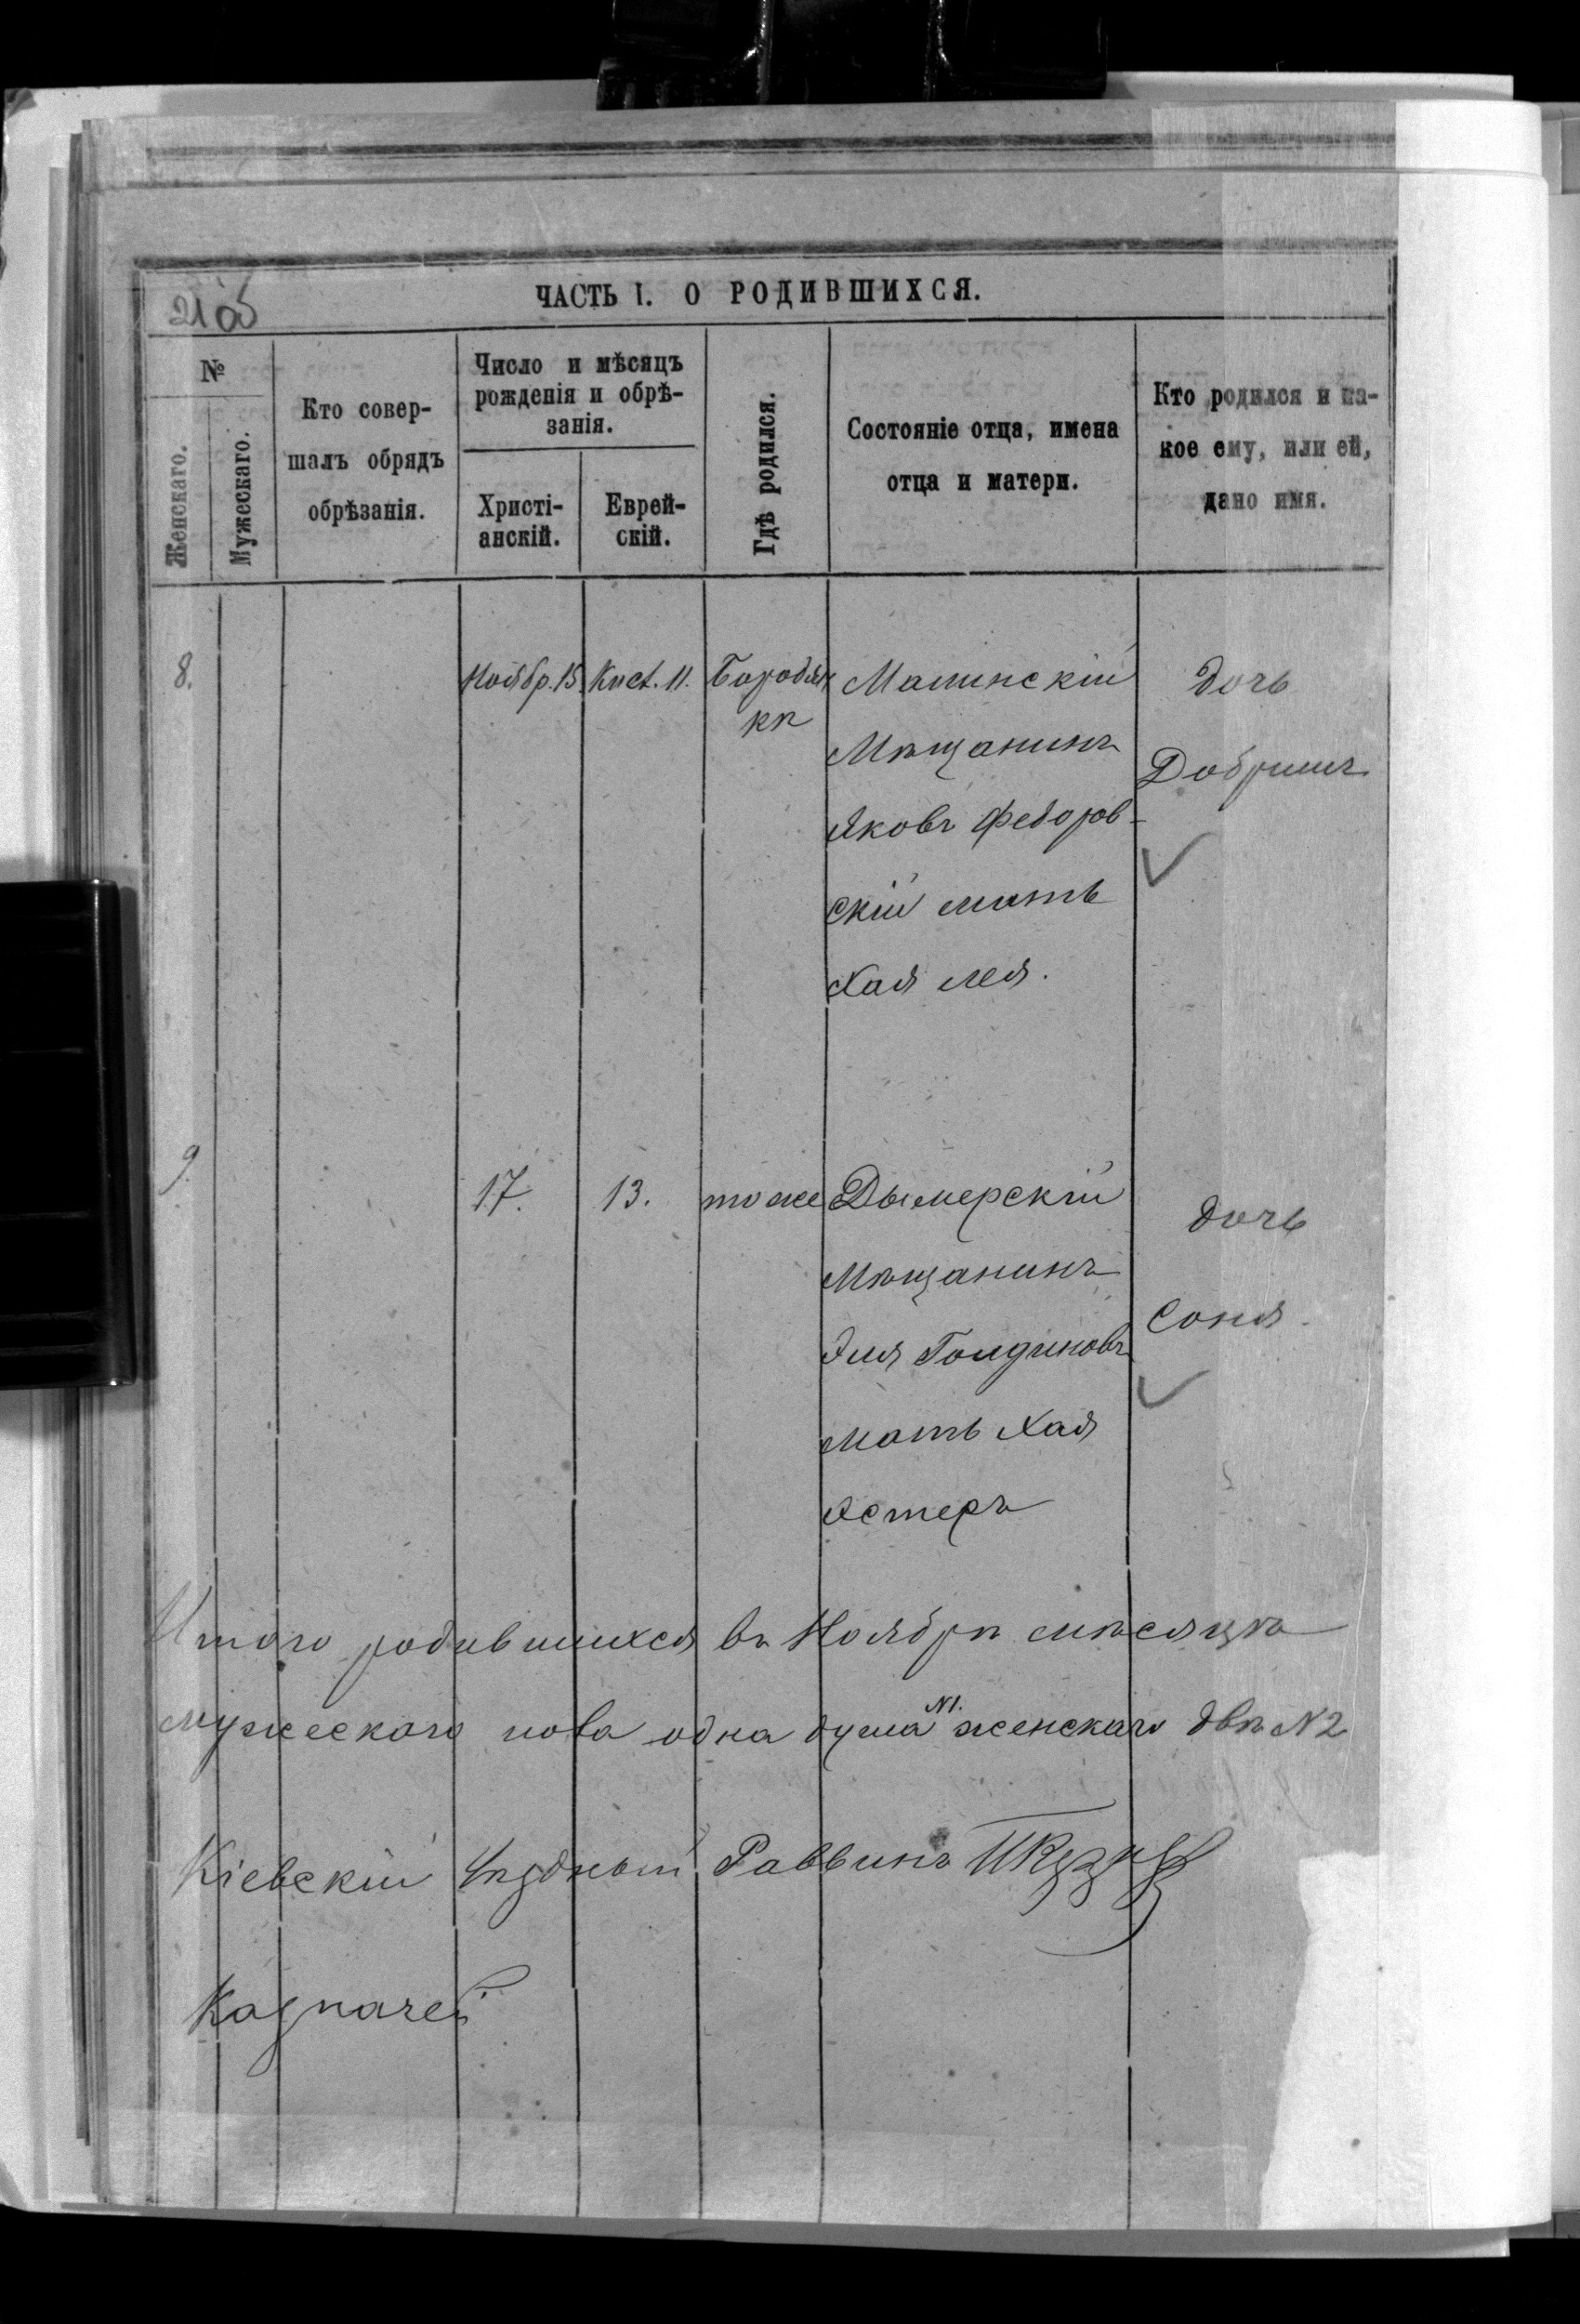 21 об
ЧАСТЬ I. О РОДИВШИХСЯ.
№
Женскаго.
Мужескаго.
Кто совер-
шалъ обрядъ
обрѣзанія.
Число и мѣсяцъ
рожденія и обрѣ-
занія.
Христі-
анскій.
Еврей-
скій.
Гдѣ родился.
Состояніе отца, имена
отца и матери.
Кто родился и ка-
кое ему, или ей,
дано имя.
8. Ноябр. 15. Кист. 11. Бородян Малинскій дочь
кѣ Мѣщанинъ Добришъ
Яковъ Федоров-
скій мать
Хая Лея.
9. 17. 13. тоже Дымерскій дочь
Мѣщанинъ
Эля Голдиновъ Соня.
мать Хая
Эстеръ
Итого родившихся въ Ноябрѣ мѣсяцѣ
мужескаго пола одна душа N1. женскаго двѣ N2
Кіевскій Уѣздный Раввинъ
Казначей